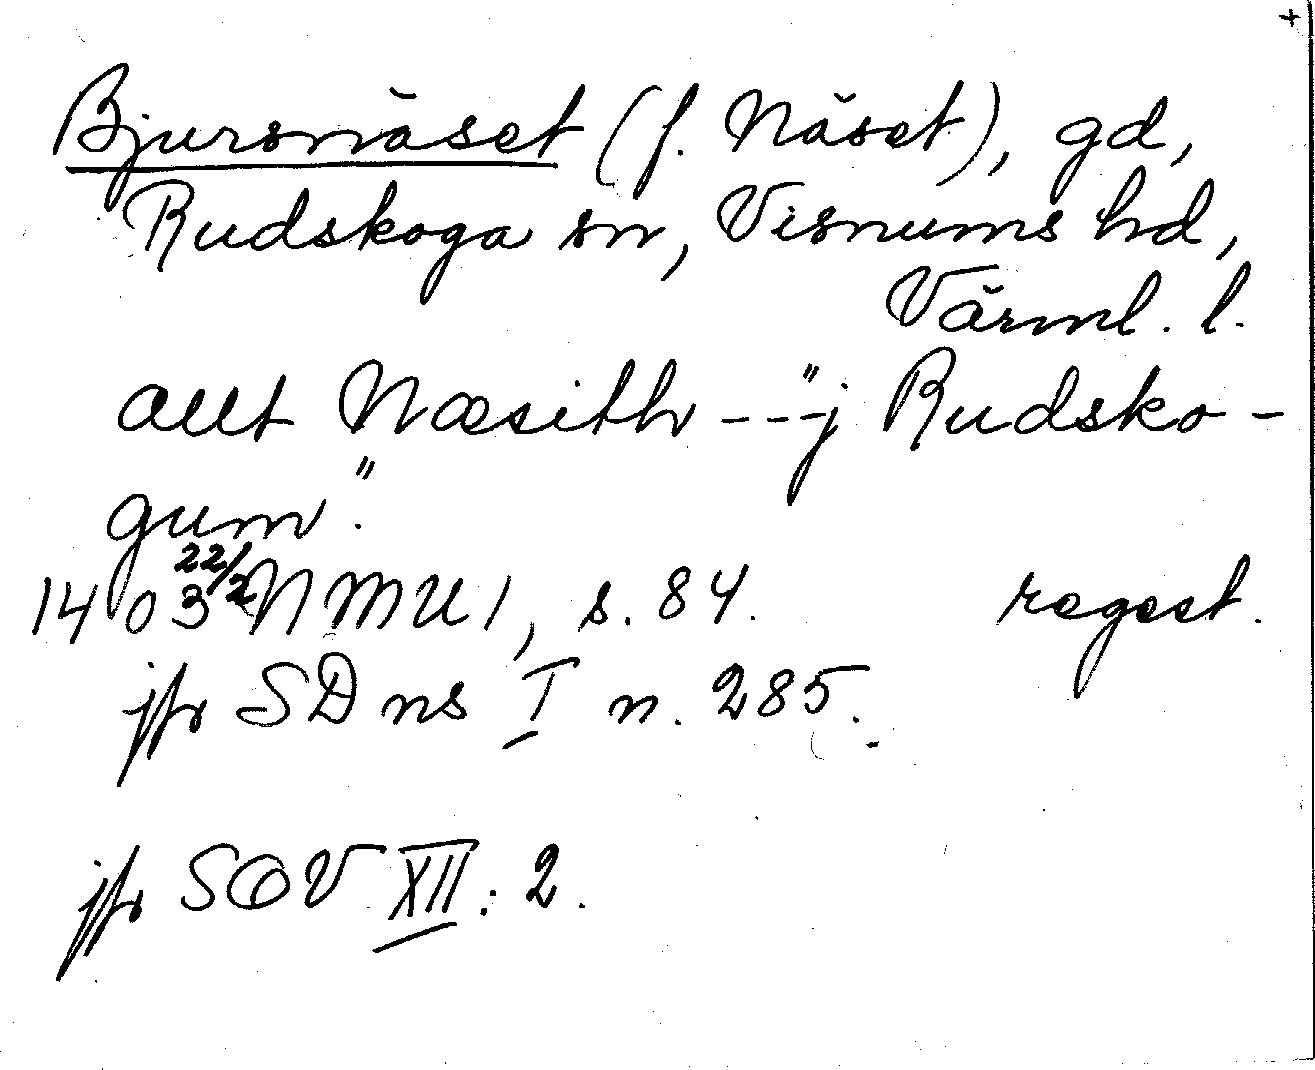 +
Bjursnäset (f. Näset), gd,
Rudskoga sn, Visnums hd,
Värml. l.
allt Næsith --- "j Rudsko-
gum".
1403 22/2 NMU 1, s. 84. regest.
jfr SD ns I n. 285.
jfr SOV XII: 2.